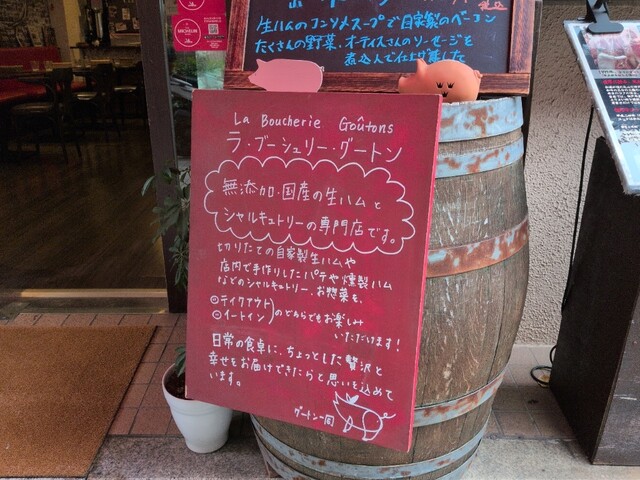 生ハムのコンソメスープで自家製のベーコン
たくさんの野菜、オーティスさんのソーセージを
煮込んで仕上げました
MICHELIN
La Boucherie Goûtons
ラ・ブーシュリー・グートン
無添加・国産の生ハムと
シャルキュトリーの専門店です。
切りたての自家製生ハムや
店内で手作りしたパテや燻製ハム
などのシャルキュトリー、お惣菜を、
テイクアウト
イートイン
のどちらでもお楽しみ
いただけます!
日常の食卓に、ちょっとした贅沢と
幸せをお届けできたらと思いを込めて
います。
グートン一同